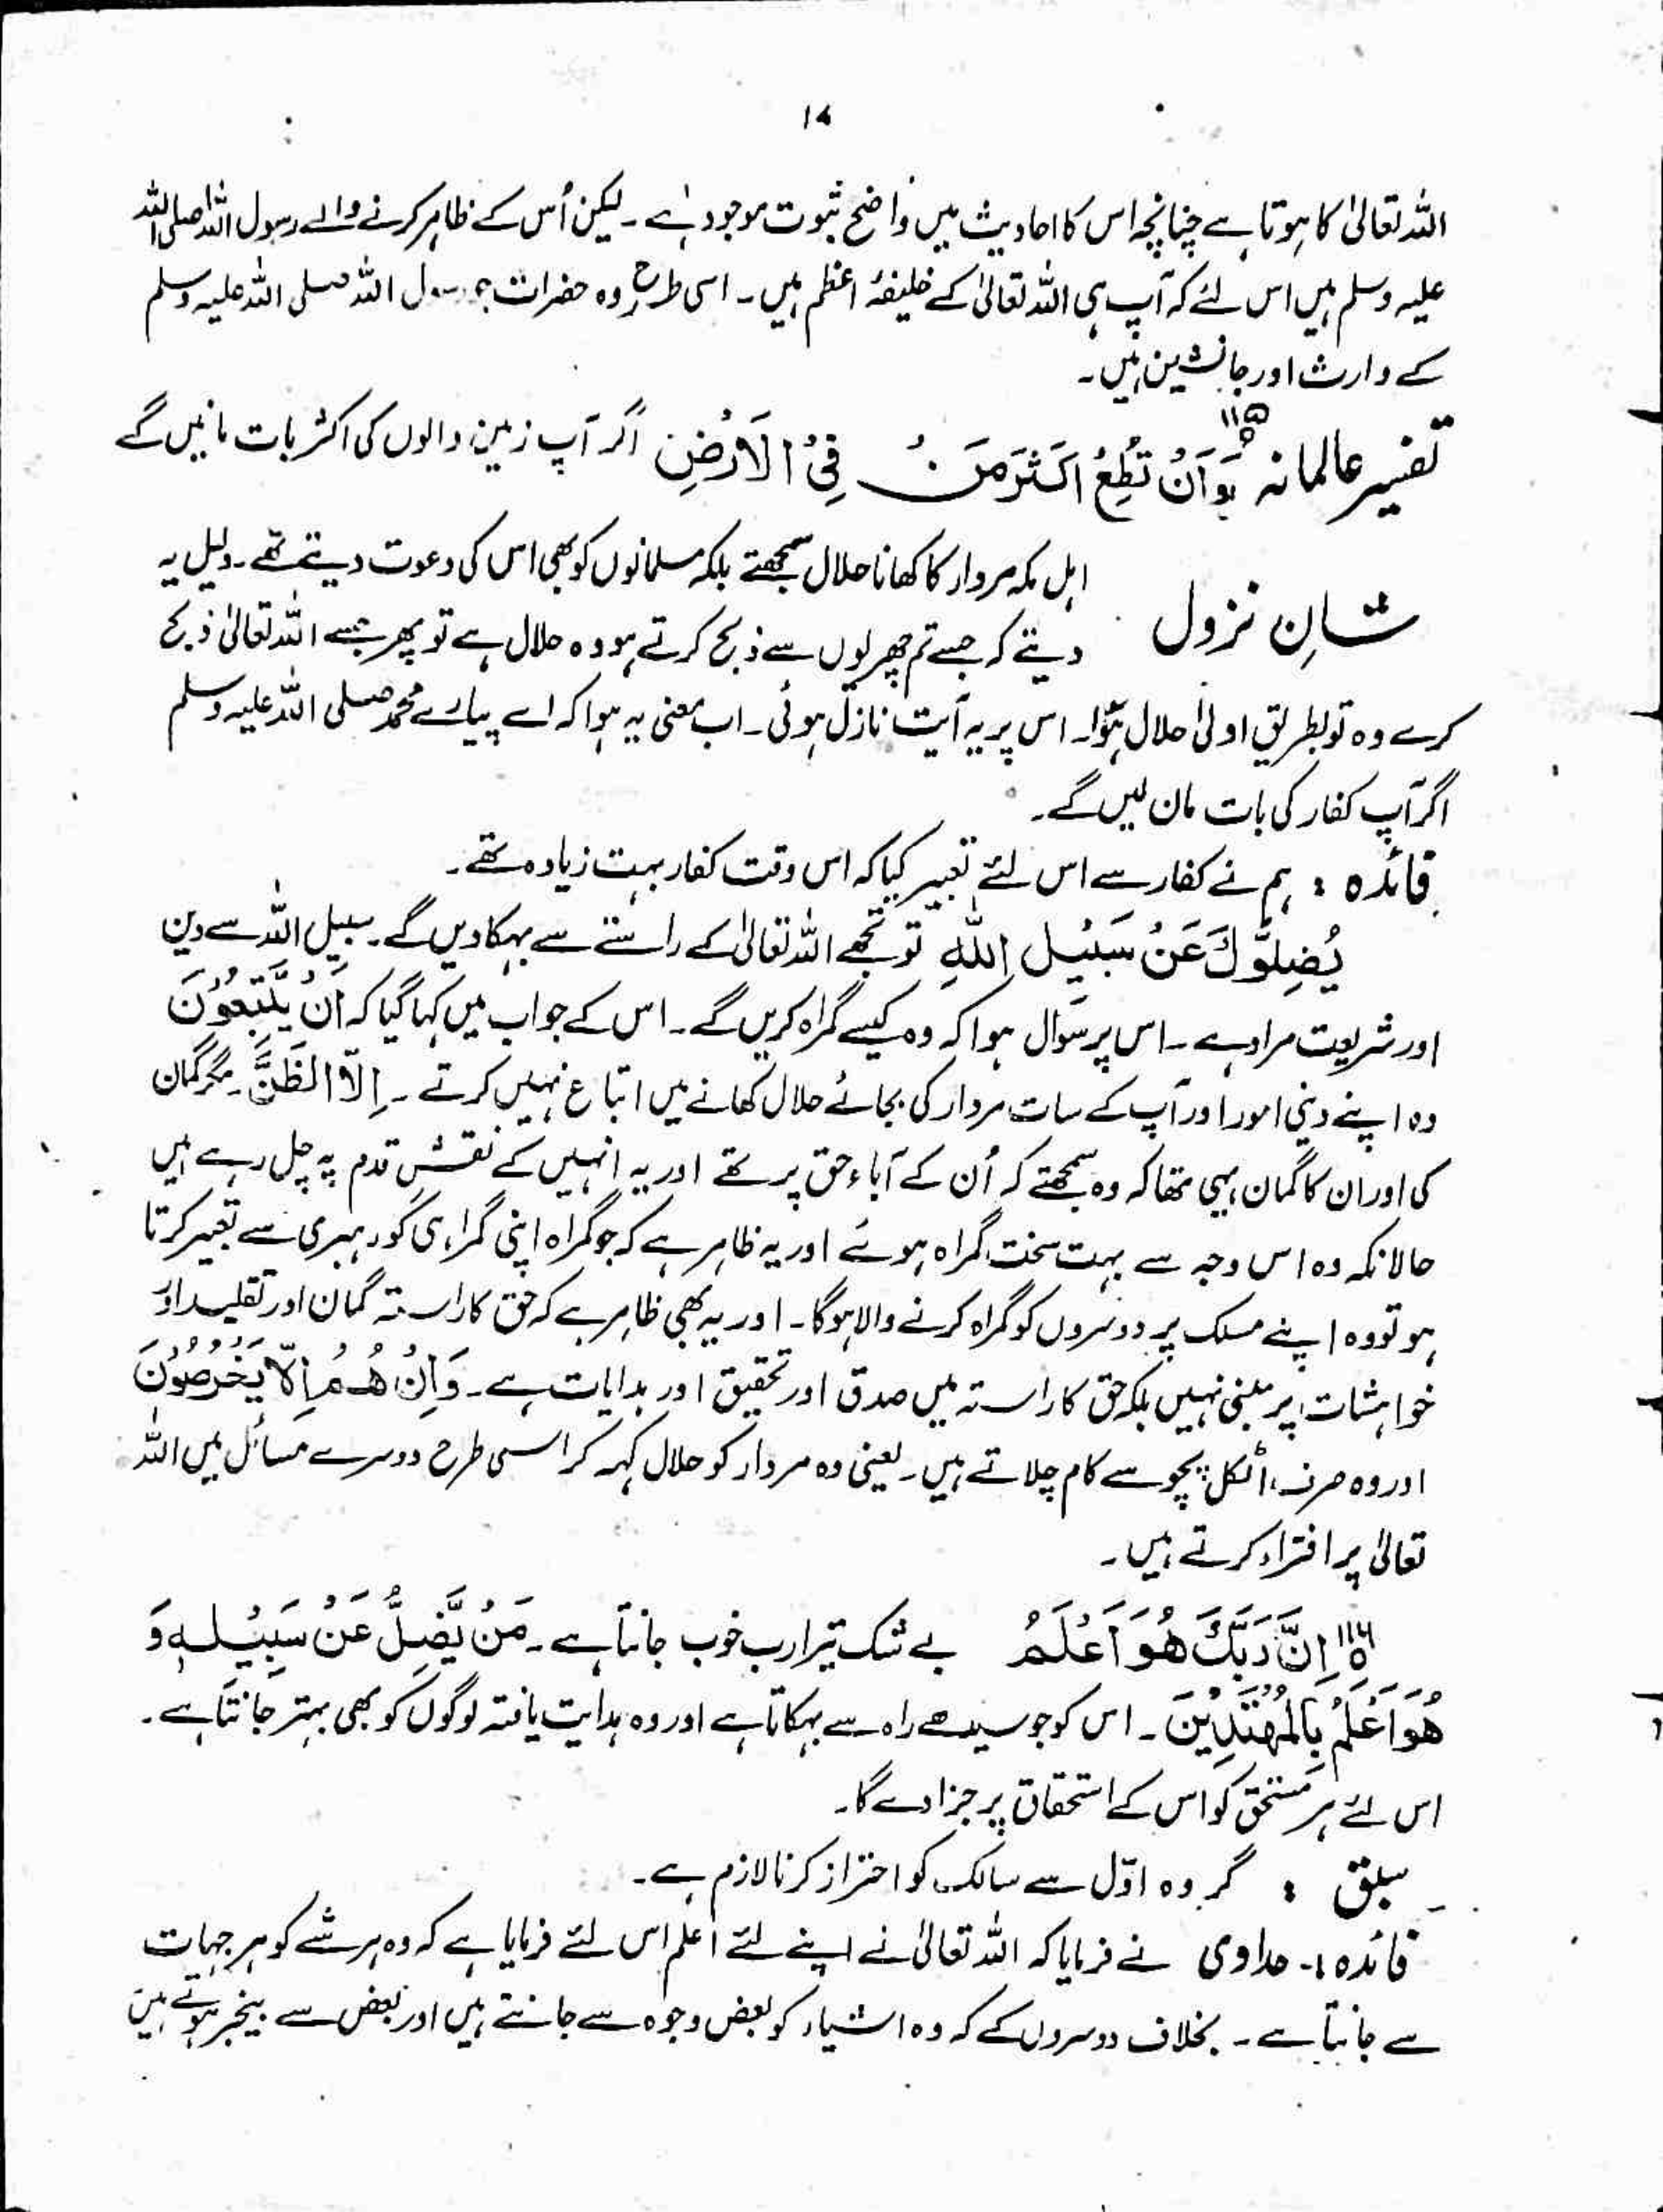 14
اللہ تعالیٰ کا ہوتا ہے چنانچہ اس کا احادیث میں واضح ثبوت موجود ہے ۔ لیکن اُس کے ظاہر کرنے والے رسول اللہ صلی اللہ
علیہ وسلم ہیں اس لئے کہ آپ ہی اللہ تعالیٰ کے خلیفۂ اعظم ہیں ۔ اسی طرح وہ حضرات جو رسول اللہ صلی اللہ علیہ وسلم
کے وارث اور جانشین ہیں ۔
تفسیر عالمانہ ۱۱۵ وَاَنْ تُطِعْ اَكْثَرَ مَنْ فِیْ الْاَرْضِ اگر آپ زمین والوں کی اکثر بات مانیں گے
شانِ نزول اہل مکہ مردار کا کھانا حلال سمجھتے بلکہ مسلمانوں کو بھی اس کی دعوت دیتے تھے ۔ دلیل یہ
دیتے کہ جسے تم چھریوں سے ذبح کرتے ہو وہ حلال ہے تو پھر جسے اللہ تعالیٰ ذبح
کرے وہ تو بطریق اولیٰ حلال ہؤا ۔ اس پر یہ آیت نازل ہوئی ۔ اب معنی یہ ہوا کہ اے پیارے محمد صلی اللہ علیہ وسلم
اگر آپ کفار کی بات مان لیں گے ۔
فائدہ : ہم نے کفار سے اس لئے تعبیر کیا کہ اس وقت کفار بہت زیادہ تھے ۔
یُضِلُّوْكَ عَنْ سَبِیْلِ اللّٰهِ تو تجھے اللہ تعالیٰ کے راستے سے بہکا دیں گے ۔ سبیل اللہ سے دین
اور شریعت مراد ہے ۔ اس پر سوال ہوا کہ وہ کیسے گمراہ کریں گے ۔ اس کے جواب میں کہا گیا کہ اَنْ یَّتَّبِعُوْنَ
وہ اپنے دینی امور اور آپ کے سات مردار کی بجائے حلال کھانے میں اتباع نہیں کرتے ۔ اِلَّا الظَّنَّ ۔ مگر گمان
کی اور ان کا گمان یہی تھا کہ وہ سمجھتے کہ اُن کے آباء حق پر تھے اور یہ انہیں کے نقشِ قدم پہ چل رہے ہیں
حالانکہ وہ اس وجہ سے بہت سخت گمراہ ہوئے اور یہ ظاہر ہے کہ جو گمراہ اپنی گمراہی کو رہبری سے تعبیر کرتا
ہو تو وہ اپنے مسلک پر دوسروں کو گمراہ کرنے والا ہوگا ۔ اور یہ بھی ظاہر ہے کہ حق کا راستہ گمان اور تقلید اور
خواہشات پر مبنی نہیں بلکہ حق کا راستہ میں صدق اور تحقیق اور ہدایات ہے ۔ وَاِنْ هُمْ اِلَّا یَخْرُصُوْنَ
اور وہ صرف اٹکل پچو سے کام چلاتے ہیں ۔ یعنی وہ مردار کو حلال کہہ کر اسی طرح دوسرے مسائل میں اللہ
تعالیٰ پر افتراء کرتے ہیں ۔
۱۱۶ اِنَّ رَبَّكَ هُوَ اَعْلَمُ بے شک تیرا رب خوب جانتا ہے ۔ مَنْ یَّضِلُّ عَنْ سَبِیْلِهٖ وَ
هُوَ اَعْلَمُ بِالْمُهْتَدِیْنَ ۔ اس کو جو سیدھے راہ سے بہکاتا ہے اور وہ ہدایت یافتہ لوگوں کو بھی بہتر جانتا ہے ۔
اس لئے ہر مستحق کو اس کے استحقاق پر جزا دے گا ۔
سبق : گروہ اوّل سے سالک کو احتراز کرنا لازم ہے ۔
فائدہ :۔ حدادی نے فرمایا کہ اللہ تعالیٰ نے اپنے لئے اعلم اس لئے فرمایا ہے کہ وہ ہر شے کو ہر جہات
سے جانتا ہے ۔ بخلاف دوسروں کے کہ وہ اشیاء کو بعض وجوہ سے جانتے ہیں اور بعض سے بیخبر ہوتے ہیں